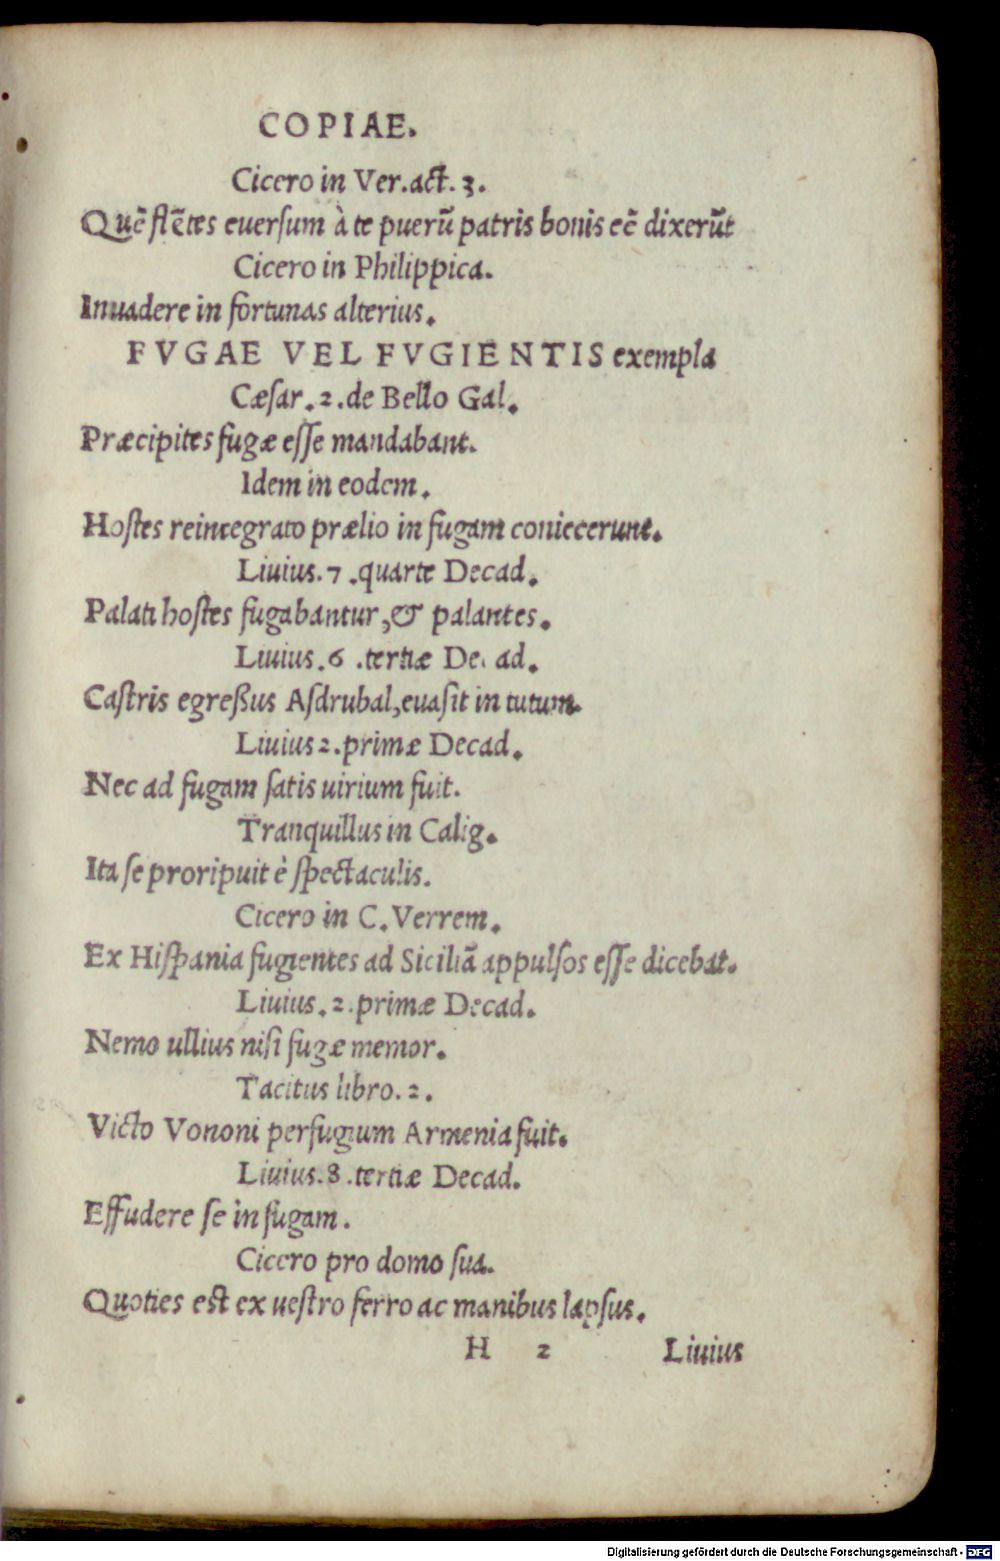 COPIAE.
Cicero in Ver.act.3.
Quē flētes euersum à te puerū patris bonis eē dixerūt
Cicero in Philippica.
Inuadere in fortunas alterius.
FVGAE VEL FVGIENTIS exempla
Cæsar.2.de Bello Gal.
Præcipites fugæ esse mandabant.
Idem in eodem.
Hostes reintegrato prælio in fugam coniecerunt.
Liuius.7.quarte Decad.
Palati hostes fugabantur,& palantes.
Liuius.6.tertiæ De ad.
Castris egreßus Asdrubal,euasit in tutum.
Liuius 2.primæ Decad.
Nec ad fugam satis uirium fuit.
Tranquillus in Calig.
Ita se proripuit è spectaculis.
Cicero in C.Verrem.
Ex Hispania fugientes ad Siciliā appulsos esse dicebat.
Liuius.2.primæ Decad.
Nemo ullius nisi fugæ memor.
Tacitus libro.2.
Victo Vononi perfugium Armenia fuit.
Liuius.8.tertiæ Decad.
Effudere se in fugam.
Cicero pro domo sua.
Quoties est ex uestro ferro ac manibus lapsus.
H 2 Liuius
Digitalisierung gefördert durch die Deutsche Forschungsgemeinschaft - DFG